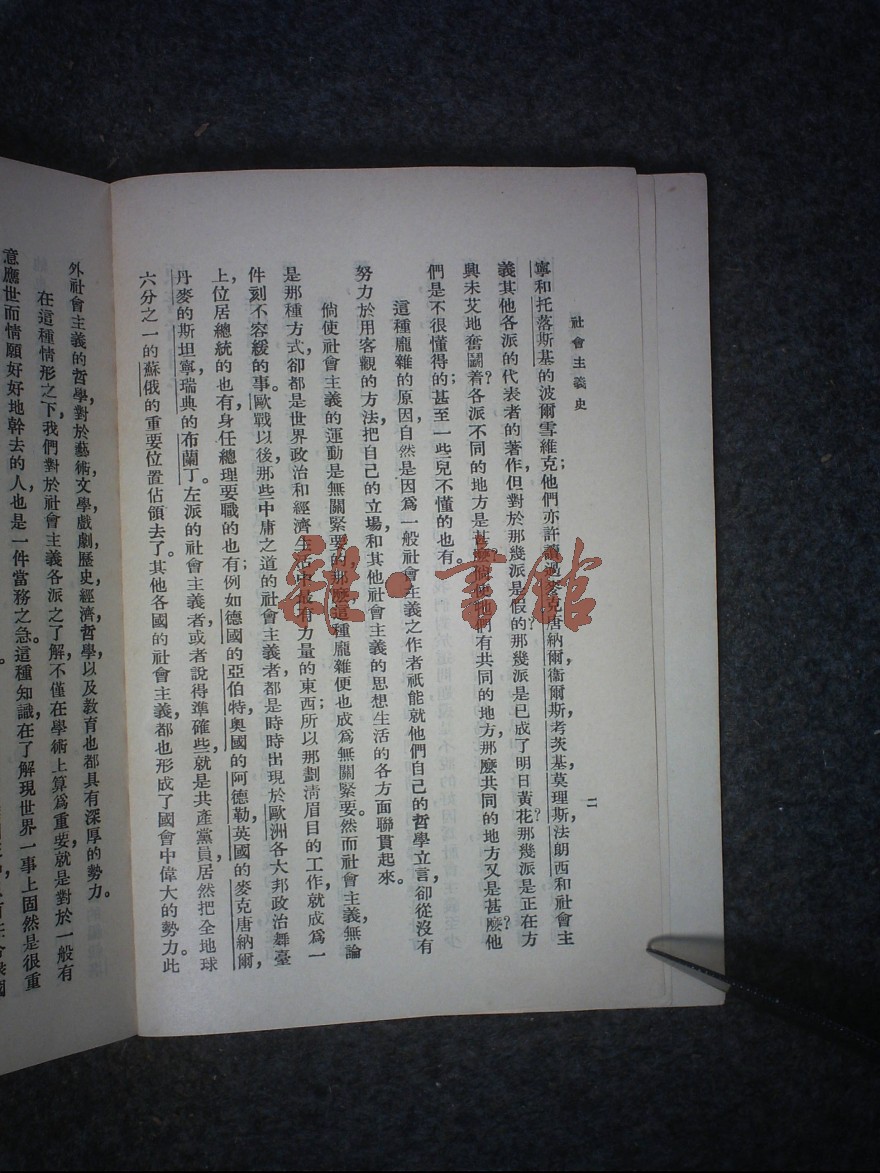 社會主義史
二
寧和托落斯基的波爾雪維克；他們亦許讀過麥克唐納爾，衞爾斯，考茨基，莫理斯，法朗西和社會主
義其他各派的代表者的著作，但對於那幾派是假的？那幾派是已成了明日黃花？那幾派是正在方
興未艾地奮鬭着？各派不同的地方是甚麽？倘使他們有共同的地方，那麽共同的地方又是甚麽？他
們是不很懂得的；甚至一些兒不懂的也有。
這種龐雜的原因，自然是因爲一般社會主義之作者祇能就他們自己的哲學立言，卻從沒有
努力於用客觀的方法，把自己的立場和其他社會主義的思想生活的各方面聯貫起來。
倘使社會主義的運動是無關緊要的，那麽這種龐雜便也成爲無關緊要。然而社會主義，無論
是那種方式，卻都是世界政治和經濟生活中最有力量的東西；所以那劃淸眉目的工作，就成爲一
件刻不容緩的事。歐戰以後，那些中庸之道的社會主義者，都是時時出現於歐洲各大邦政治舞臺
上，位居總統的也有，身任總理要職的也有；例如德國的亞伯特，奧國的阿德勒，英國的麥克唐納爾，
丹麥的斯坦寧，瑞典的布蘭丁。左派的社會主義者，或者說得準確些，就是共產黨員，居然把全地球
六分之一的蘇俄的重要位置佔領去了。其他各國的社會主義，都也形成了國會中偉大的勢力。此
外社會主義的哲學，對於藝術，文學，戲劇，歷史，經濟，哲學，以及教育，也都具有深厚的勢力。
在這種情形之下，我們對於社會主義各派之了解，不僅在學術上算爲重要，就是對於一般有
意應世而情願好好地幹去的人，也是一件當務之急。這種知識，在了解現世界一事上，固然是很重
雜·書館